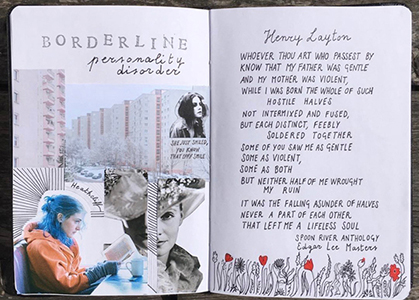 BORDERLINE
personality
disorder
SHE JUST SMILED,
YOU KNOW
THAT SMILE
Henry Layton
WHOEVER THOU ART WHO PASSEST BY
KNOW THAT MY FATHER WAS GENTLE
AND MY MOTHER WAS VIOLENT,
WHILE I WAS BORN THE WHOLE OF SUCH
HOSTILE HALVES
NOT INTERMIXED AND FUSED,
BUT EACH DISTINCT, FEEBLY
SOLDERED TOGETHER
SOME OF YOU SAW ME AS GENTLE
SOME AS VIOLENT,
SOME AS BOTH
BUT NEITHER HALF OF ME WROUGHT
MY RUIN
IT WAS THE FALLING ASUNDER OF HALVES
NEVER A PART OF EACH OTHER
THAT LEFT ME A LIFELESS SOUL
SPOON RIVER ANTHOLOGY
Edgar Lee Masters